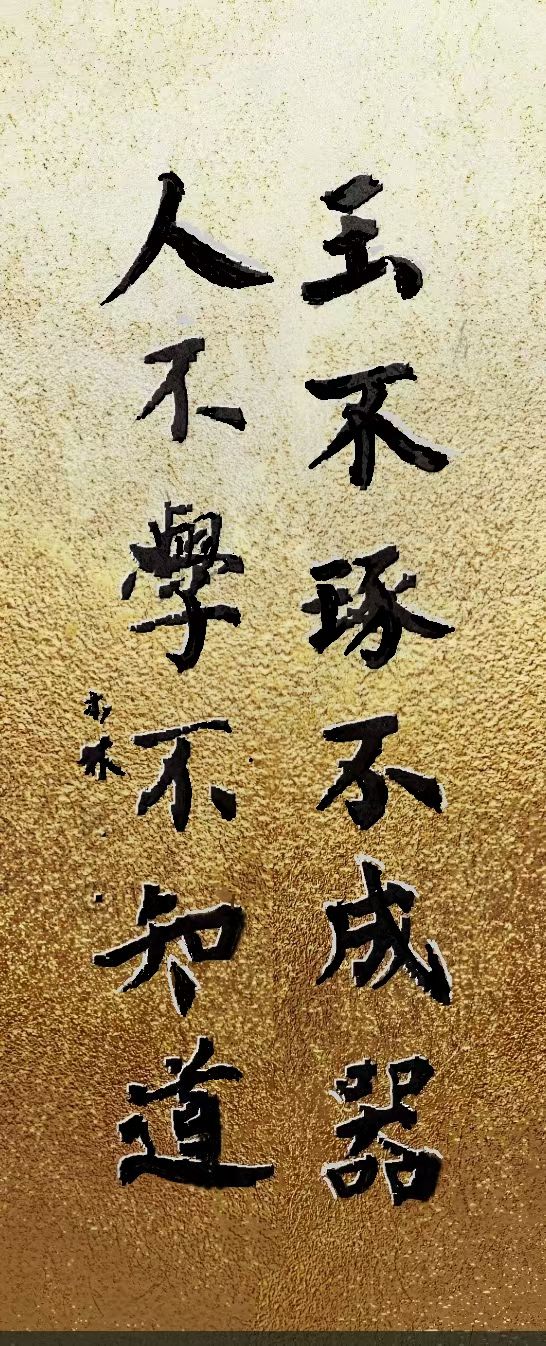 玉不琢不成器
人不學不知道